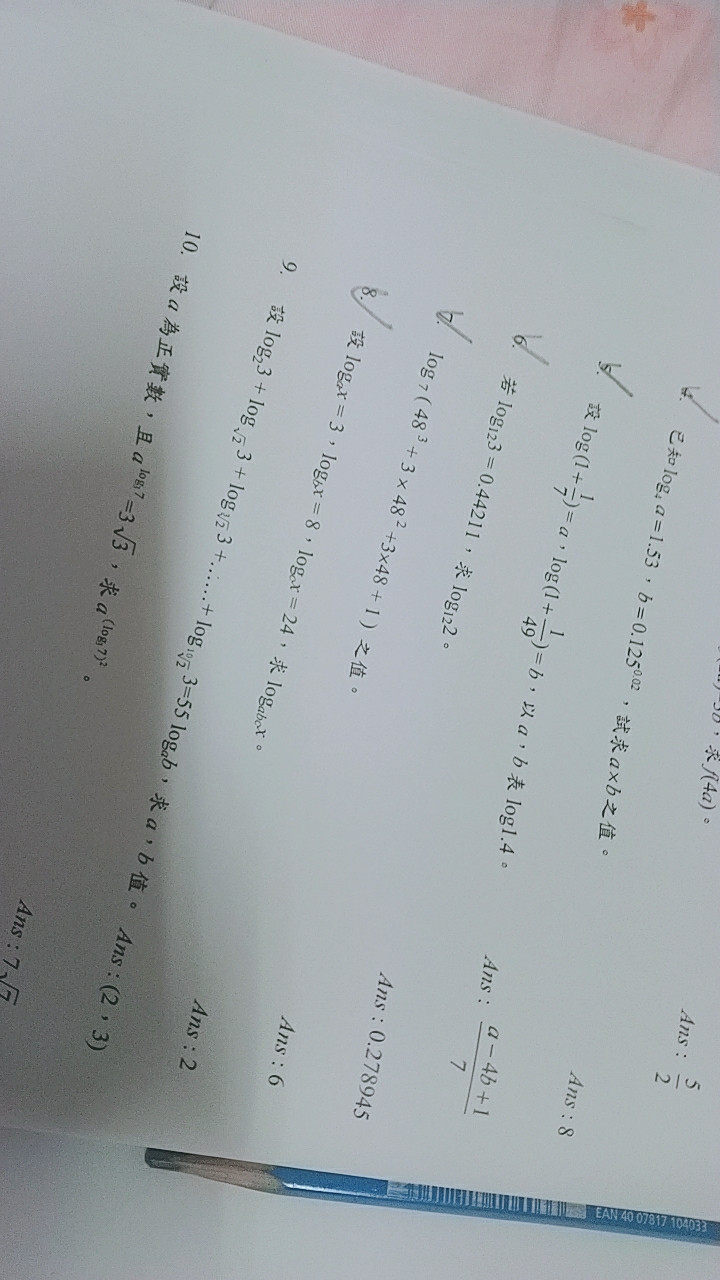 求f(4a)。
Ans : 5/2
4. 已知 log₄ a = 1.53，b = 0.125^0.02，試求 a×b 之值。
Ans : 8
5. 設 log(1+1/7)=a，log(1+1/49)=b，以 a，b 表 log1.4。
Ans : (a−4b+1)/7
6. 若 log₁₂3 = 0.44211，求 log₁₂2。
Ans : 0.278945
7. log₇(48³+3×48²+3×48+1) 之值。
Ans : 6
8. 設 logₐx = 3，log_b x = 8，log_c x = 24，求 log_abc x。
Ans : 2
9. 設 log₂3 + log_√2 3 + log_∛2 3 +……+ log_¹⁰√2 3=55 logₐb，求 a，b 值。 Ans : (2，3)
10. 設 a 為正實數，且 a^(log₃7)=3√3，求 a^((log₃7)²)。
Ans : 7√7
EAN 40 07817 104033